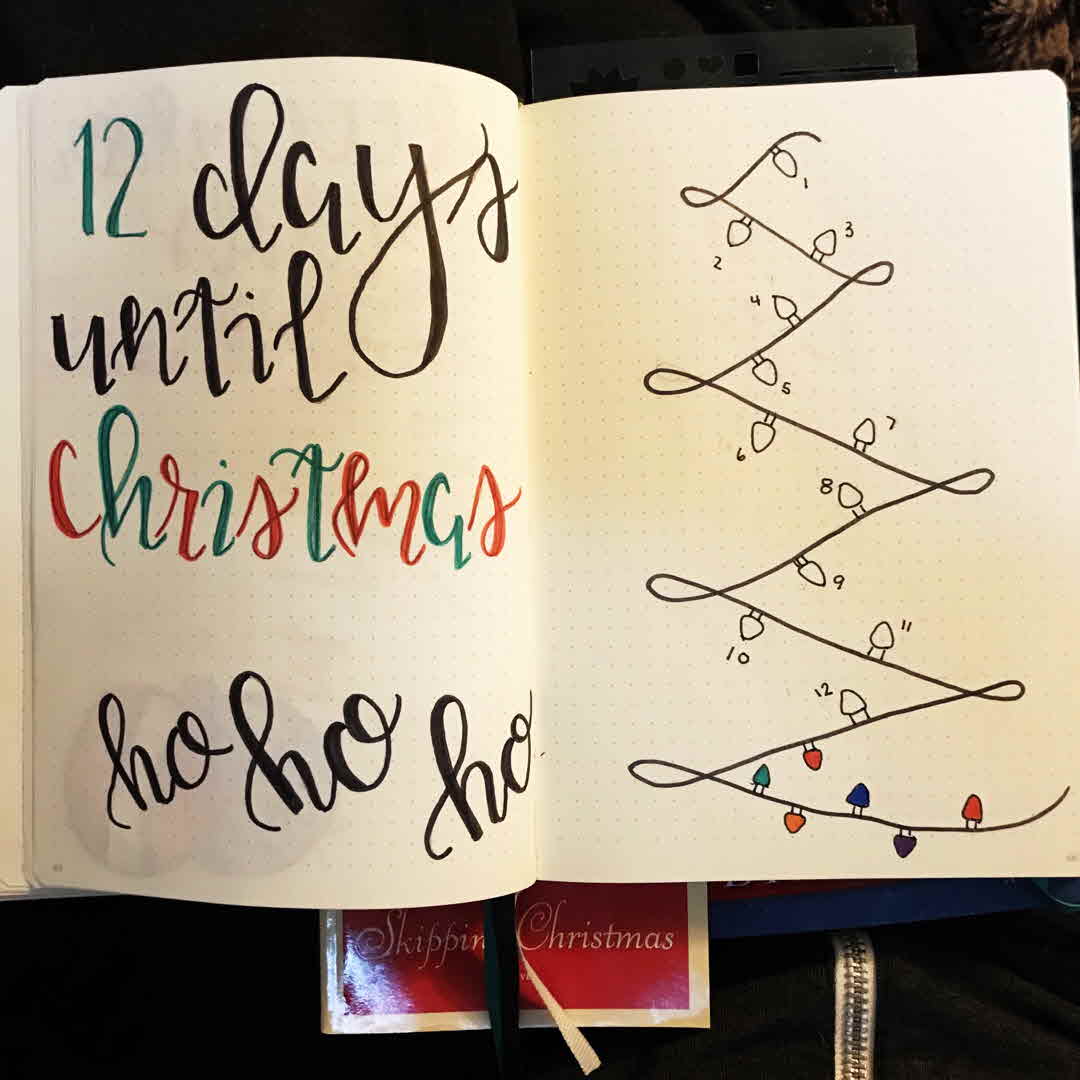 12 days
until
Christmas
ho ho ho
1
2
3
4
5
6
7
8
9
10
11
12
Skippin Christmas